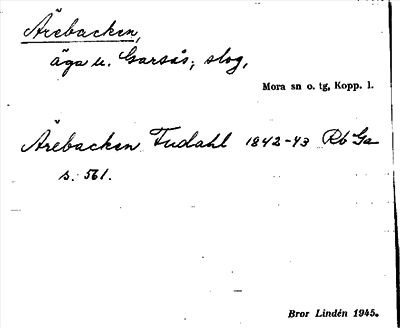 Ärebacken,
äga u. Garsås; slog,
Mora sn o. tg, Kopp. l.
Ärebacken Fudahl 1842-43 Rb Ga
s. 561.
Bror Lindén 1945.